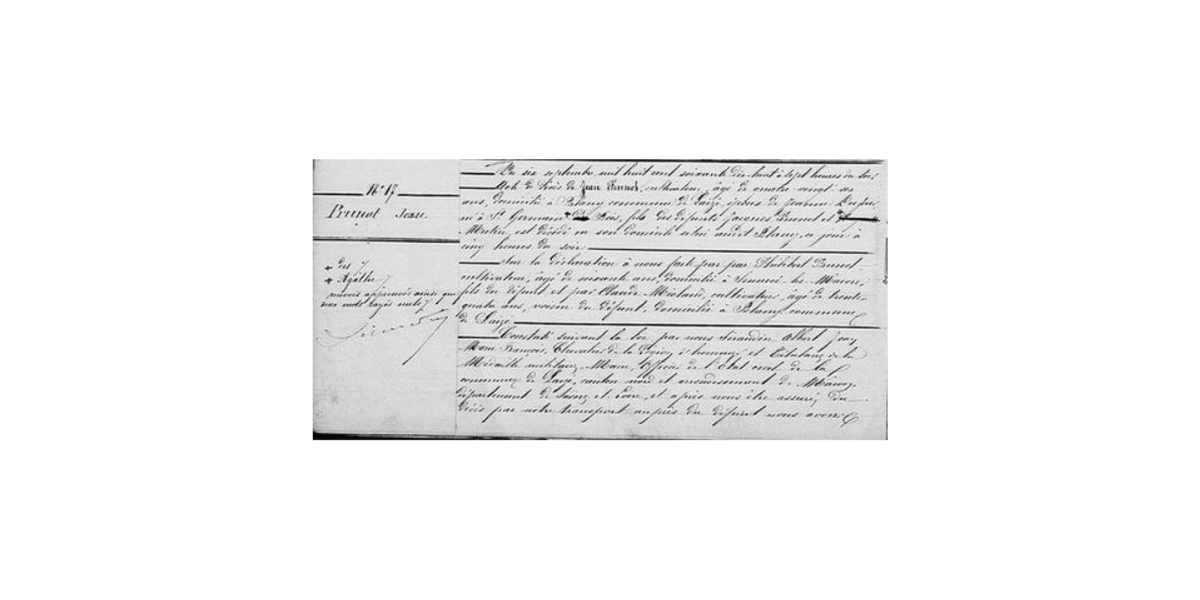 N° 17
Prunot Jean.
+ des /
+ Agathe /
renvois approuvés ainsi que
mots rayés nuls /
Du six septembre mil huit cent soixante dix-huit à sept heures du soir
Acte de décès de Jean Prunot, cultivateur, âgé de quatre-vingt
ans, domicilié à Blany commune de Laizé, époux de Jeanne
né à St Germain + des Bois, fils des défunts Jacques Prunot et +
Martin, est décédé en son domicile situé audit Blany, ce jour à
cinq heures du soir
Sur la déclaration à nous faite par par Philibert Prunot
cultivateur, âgé de soixante ans, domicilié à Sennecé-lès-Mâcon,
fils du défunt et par Claude cultivateur, âgé de trente-
quatre ans, voisin du défunt, domicilié à Blany commune
de Laizé
Constaté suivant la loi par nous Sirandin Albert Jean
Marie François, Chevalier de la Légion d'honneur et titulaire de la
Médaille militaire, Maire, Officier de l'État civil de la
commune de Laizé, canton nord et arrondissement de Mâcon,
département de Saône et Loire, et après nous être assuré du
décès par notre transport auprès du défunt nous avons